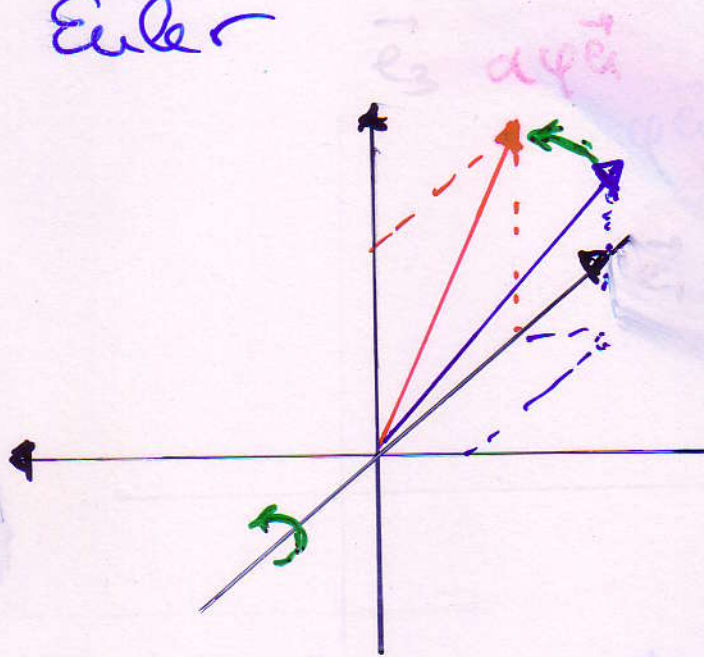 Euler
e⃗₃ dφe⃗₁
e⃗₁